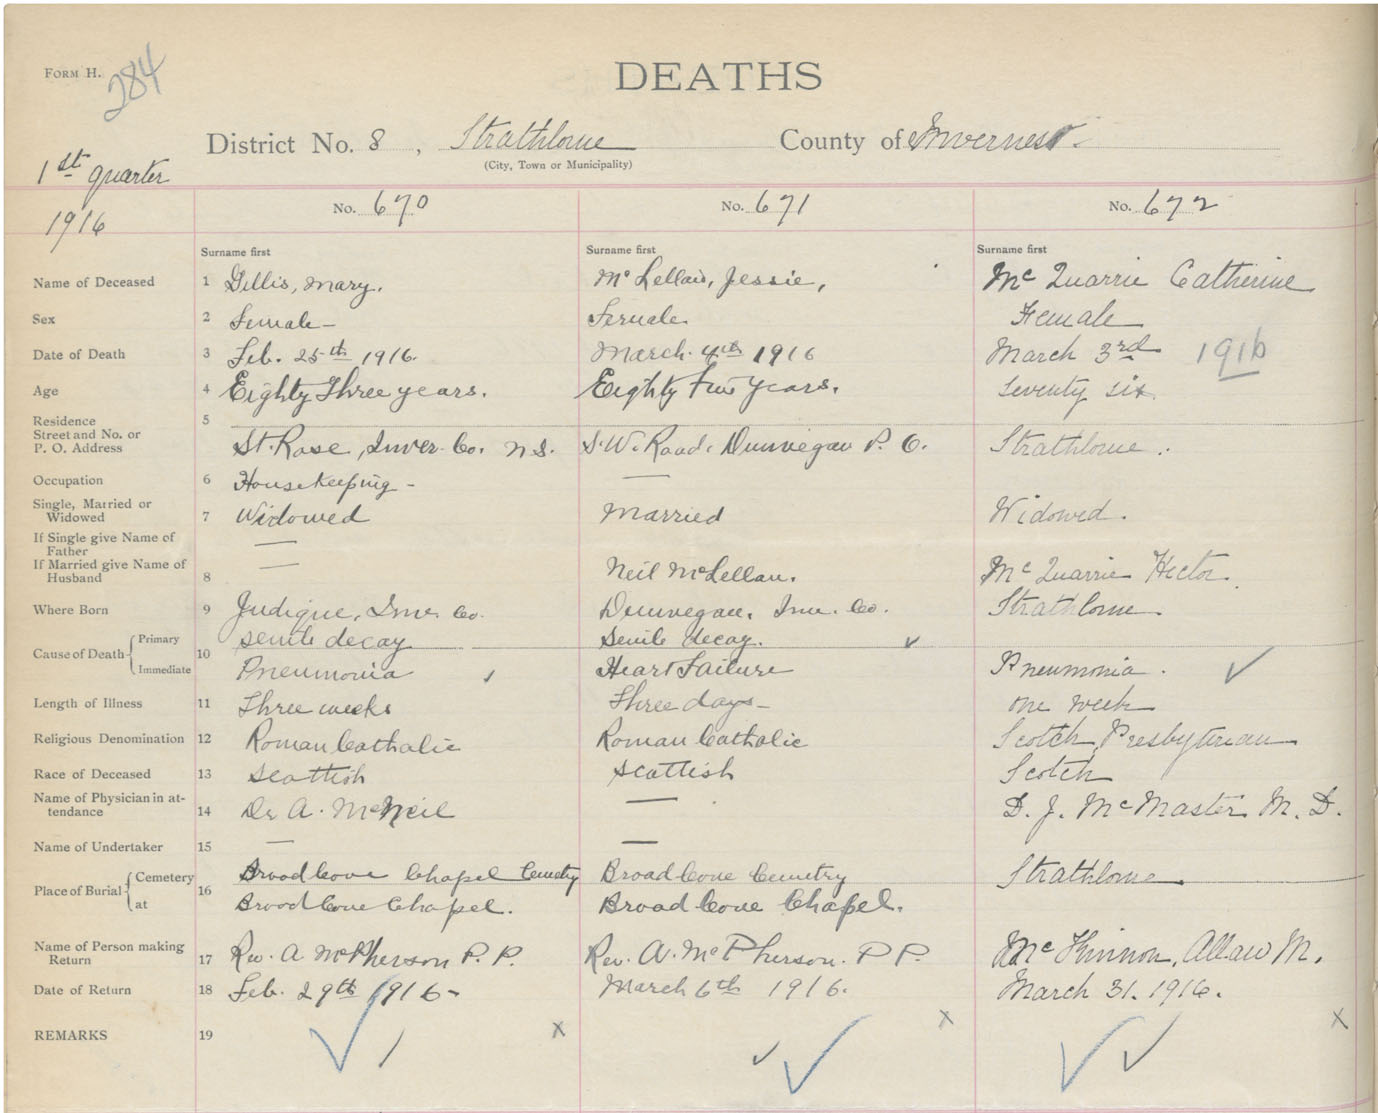 FORM H.
284
DEATHS
District No. 8, Strathlorne County of Inverness
(City, Town or Municipality)
1st quarter
1916
No. 670 No. 671 No. 672
Surname first Surname first Surname first
Name of Deceased 1 Gillis, Mary. McLellan, Jessie, McQuarrie Catherine
Sex 2 Female Female Female
Date of Death 3 Feb. 25th 1916. March. 4th 1916 March 3rd 1916
Age 4 Eighty Three years. Eighty Five years. Seventy six
Residence 5
Street and No. or
P. O. Address St. Rose, Inver. Co. N.S. S.W. Road. Dunvegan P. O. Strathlorne.
Occupation 6 Housekeeping - —
Single, Married or
Widowed 7 Widowed Married Widowed.
If Single give Name of
Father —
If Married give Name of
Husband 8 — Neil McLellan. McQuarrie Hector.
Where Born 9 Judique, Inv. Co. Dunvegan, Inv. Co. Strathlorne
Cause of Death 10 Primary senile decay Senile decay.
Immediate Pneumonia Heart Failure Pneumonia.
Length of Illness 11 Three weeks Three days - one week
Religious Denomination 12 Roman Catholic Roman Catholic Scotch Presbyterian
Race of Deceased 13 Scottish Scottish Scotch
Name of Physician in at-
tendance 14 Dr A. McNeil — D. J. McMaster M. D.
Name of Undertaker 15 — —
Place of Burial 16 Cemetery Broad Cove Chapel Cemetry Broad Cove Cemetry Strathlorne
at Broad Cove Chapel. Broad Cove Chapel.
Name of Person making
Return 17 Rev. A McPherson P. P. Rev. A. McPherson. P P. McKinnon, Allan M.
Date of Return 18 Feb. 29th 1916 - March 6th 1916. March 31. 1916.
REMARKS 19 x x x